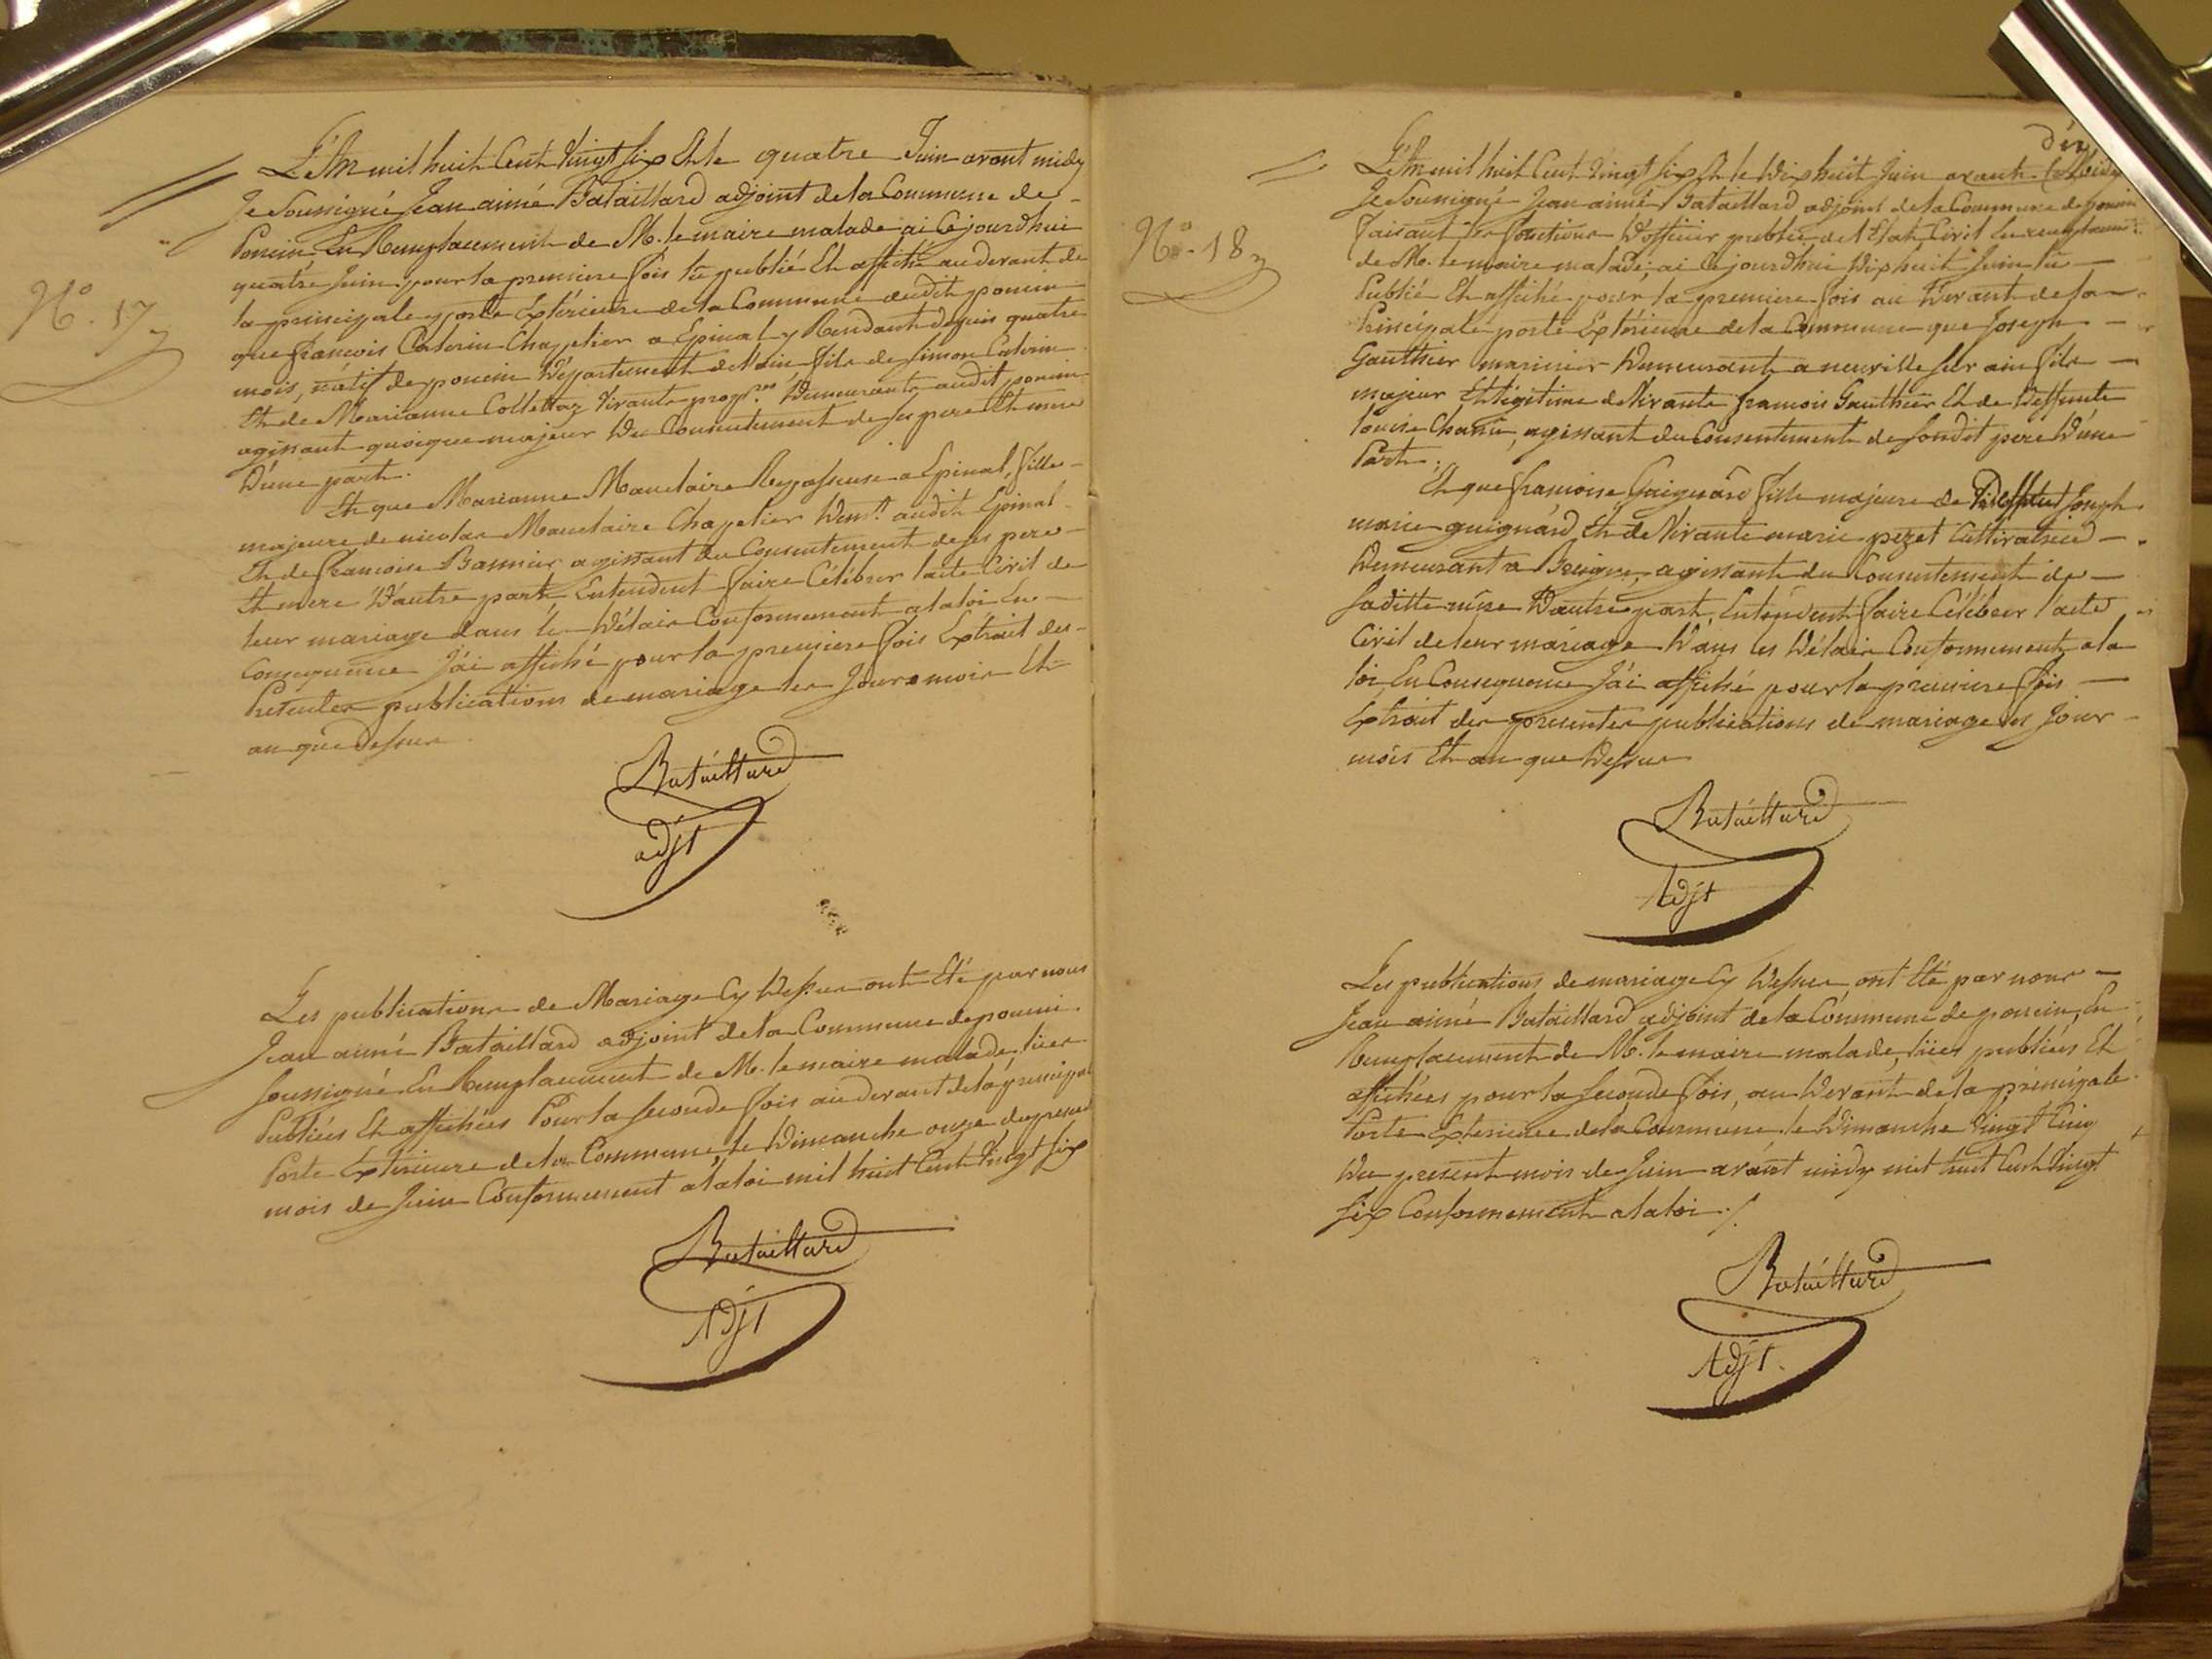 N.° 17
L'An mil huit Cent Vingt Six Et le quatre Juin avant midy
Je Soussigné Jean aimé Bataillard adjoint de la Commune de
Poncin En Remplacement de M. le maire malade ai Cejourdhui
quatre Juin pour la premiere fois lu publié Et affiché audevant de
la principale porte Extérieure de la Commune dudit poncin
que francois Caterin Chapelier a Epinal y Residant depuis quatre
mois, natif de poncin Département de l'ain fils de Simon Caterin
Et de Marianne Collettaz Vivants prop.res Demeurants audit poncin
agissant quoique majeur Du Consentement de ses pere Et mere
D'une part.
Et que Marianne Mauclaire Repasseuse a Epinal, fille
majeure de nicolas Mauclaire Chapelier Dem.t audit Epinal
Et de francoise agissant du Consentement de ses pere
Et mere D'autre part Entendent faire Célébrer l'acte Civil de
leur mariage dans les Délais Conformement a la loi En
Consequence J'ai affiché pour la premiere fois Extrait des
Présentes publications de mariage les Jour mois Et
an que dessus
Bataillard
adjt
Les publications de Mariage Cy Dessus ont Eté par nous
Jean aimé Bataillard adjoint de la Commune de poncin
soussigné En Remplacement de M. le maire malade, lues
Publiées Et affichées Pour la seconde fois audevant de la principal
Porte Extérieure de la Commune, le Dimanche onze du present
mois de Juin Conformement a la loi mil huit Cent Vingt six
Bataillard
Adjt
N.° 18
dix
L'An mil huit Cent Vingt Six Et le Dix huit Juin avant Midy
Je Soussigné Jean aimé Bataillard adjoint de la Commune de poncin
faisant les fonctions D'officier public de l'Etat Civil En remplacement
de M. le maire malade, ai Cejourdhui Dix huit Juin lu
Publié Et affiché pour la premiere fois au Devant de la
Principale porte Extérieure de la Commune que Joseph
Gauthier marinier Demeurant a neuville sur ain fils
majeur Et légitime de Vivants francois Gauthier Et de Deffunte
louise Chanu, agissant du Consentement de sondit pere D'une
Part.
Et que francoise Guignard fille majeure de Deffunt Joseph
marie guignard Et de Vivante marie pezet Cultivatrice
Demeurant a Breigne, agissante du Consentement de
saditte mère D'autre part, Entendent faire Célébrer l'acte
Civil de leur mariage Dans les Délais Conformement a la
loi, En Consequence J'ai affiché pour la premiere fois
Extrait des presentes publications de mariage les Jour
mois Et an que Dessus
Bataillard
Adjt
Les publications de mariage Cy Dessus ont Eté par nous
Jean aimé Bataillard adjoint de la Commune de poncin, En
Remplacement de M. le maire malade, lües publiées Et
affichées pour la seconde fois, au Devant de la principale
Porte Exterieure de la Commune le Dimanche Vingt Cinq
Du present mois de Juin avant midy mil huit Cent Vingt
six Conformement a la loi ./.
Bataillard
Adjt.